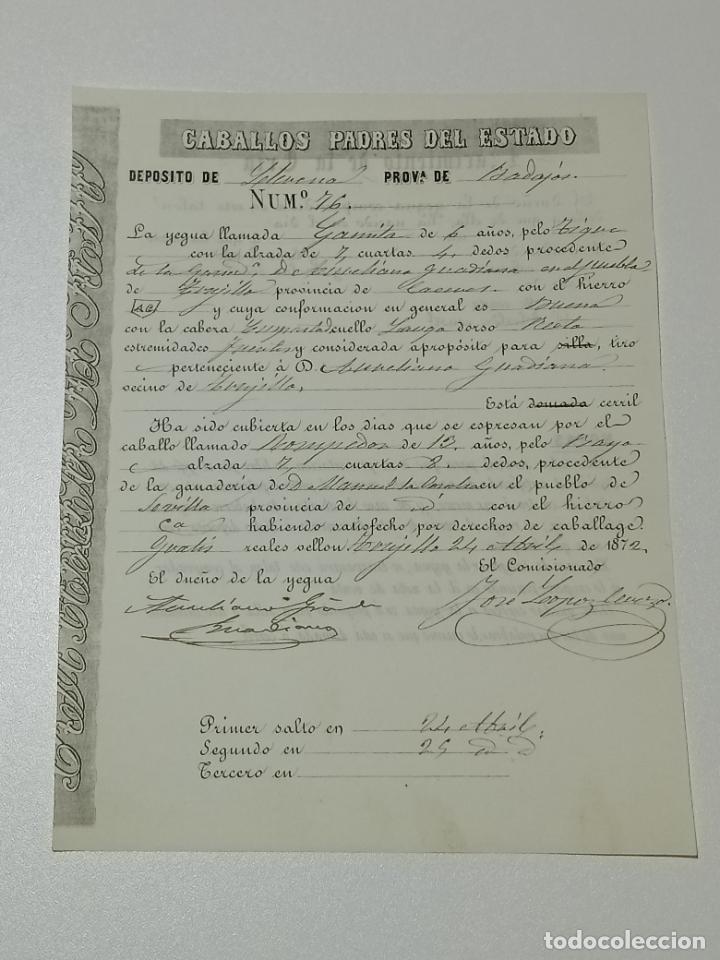 CABALLOS PADRES DEL ESTADO
DEPOSITO DE PROV.ª DE Badajós.
NUM.º 76.
La yegua llamada de 6 años, pelo Tigre
con la alzada de 7, cuartas 4, dedos procedente
de la Ganad.ª De Aureliano Guadiana en el pueblo
de Trujillo provincia de Caceres. con el hierro
AG y cuya conformacion en general es Buena
con la cabeza cuello Largo dorso Recto
estremidades Fuertes y considerada apropósito para silla, tiro
perteneciente á D. Aureliano Guadiana.
vecino de Trujillo.
Está domada cerril
Ha sido cubierta en los dias que se espresan por el
caballo llamado Rompedor de 13, años, pelo Bayo
alzada 7, cuartas 8. dedos, procedente
de la ganadería de D. Manuel la en el pueblo de
Sevilla provincia de id con el hierro
Cª habiendo satisfecho por derechos de caballage.
Gratis reales vellon. Trujillo 24 Abril de 1872.
El dueño de la yegua El Comisionado
Aureliano José Lopez
Guadiana
Primer salto en 24 Abril.
Segundo en 25 id. id
Tercero en
todocoleccion
todocoleccion.net